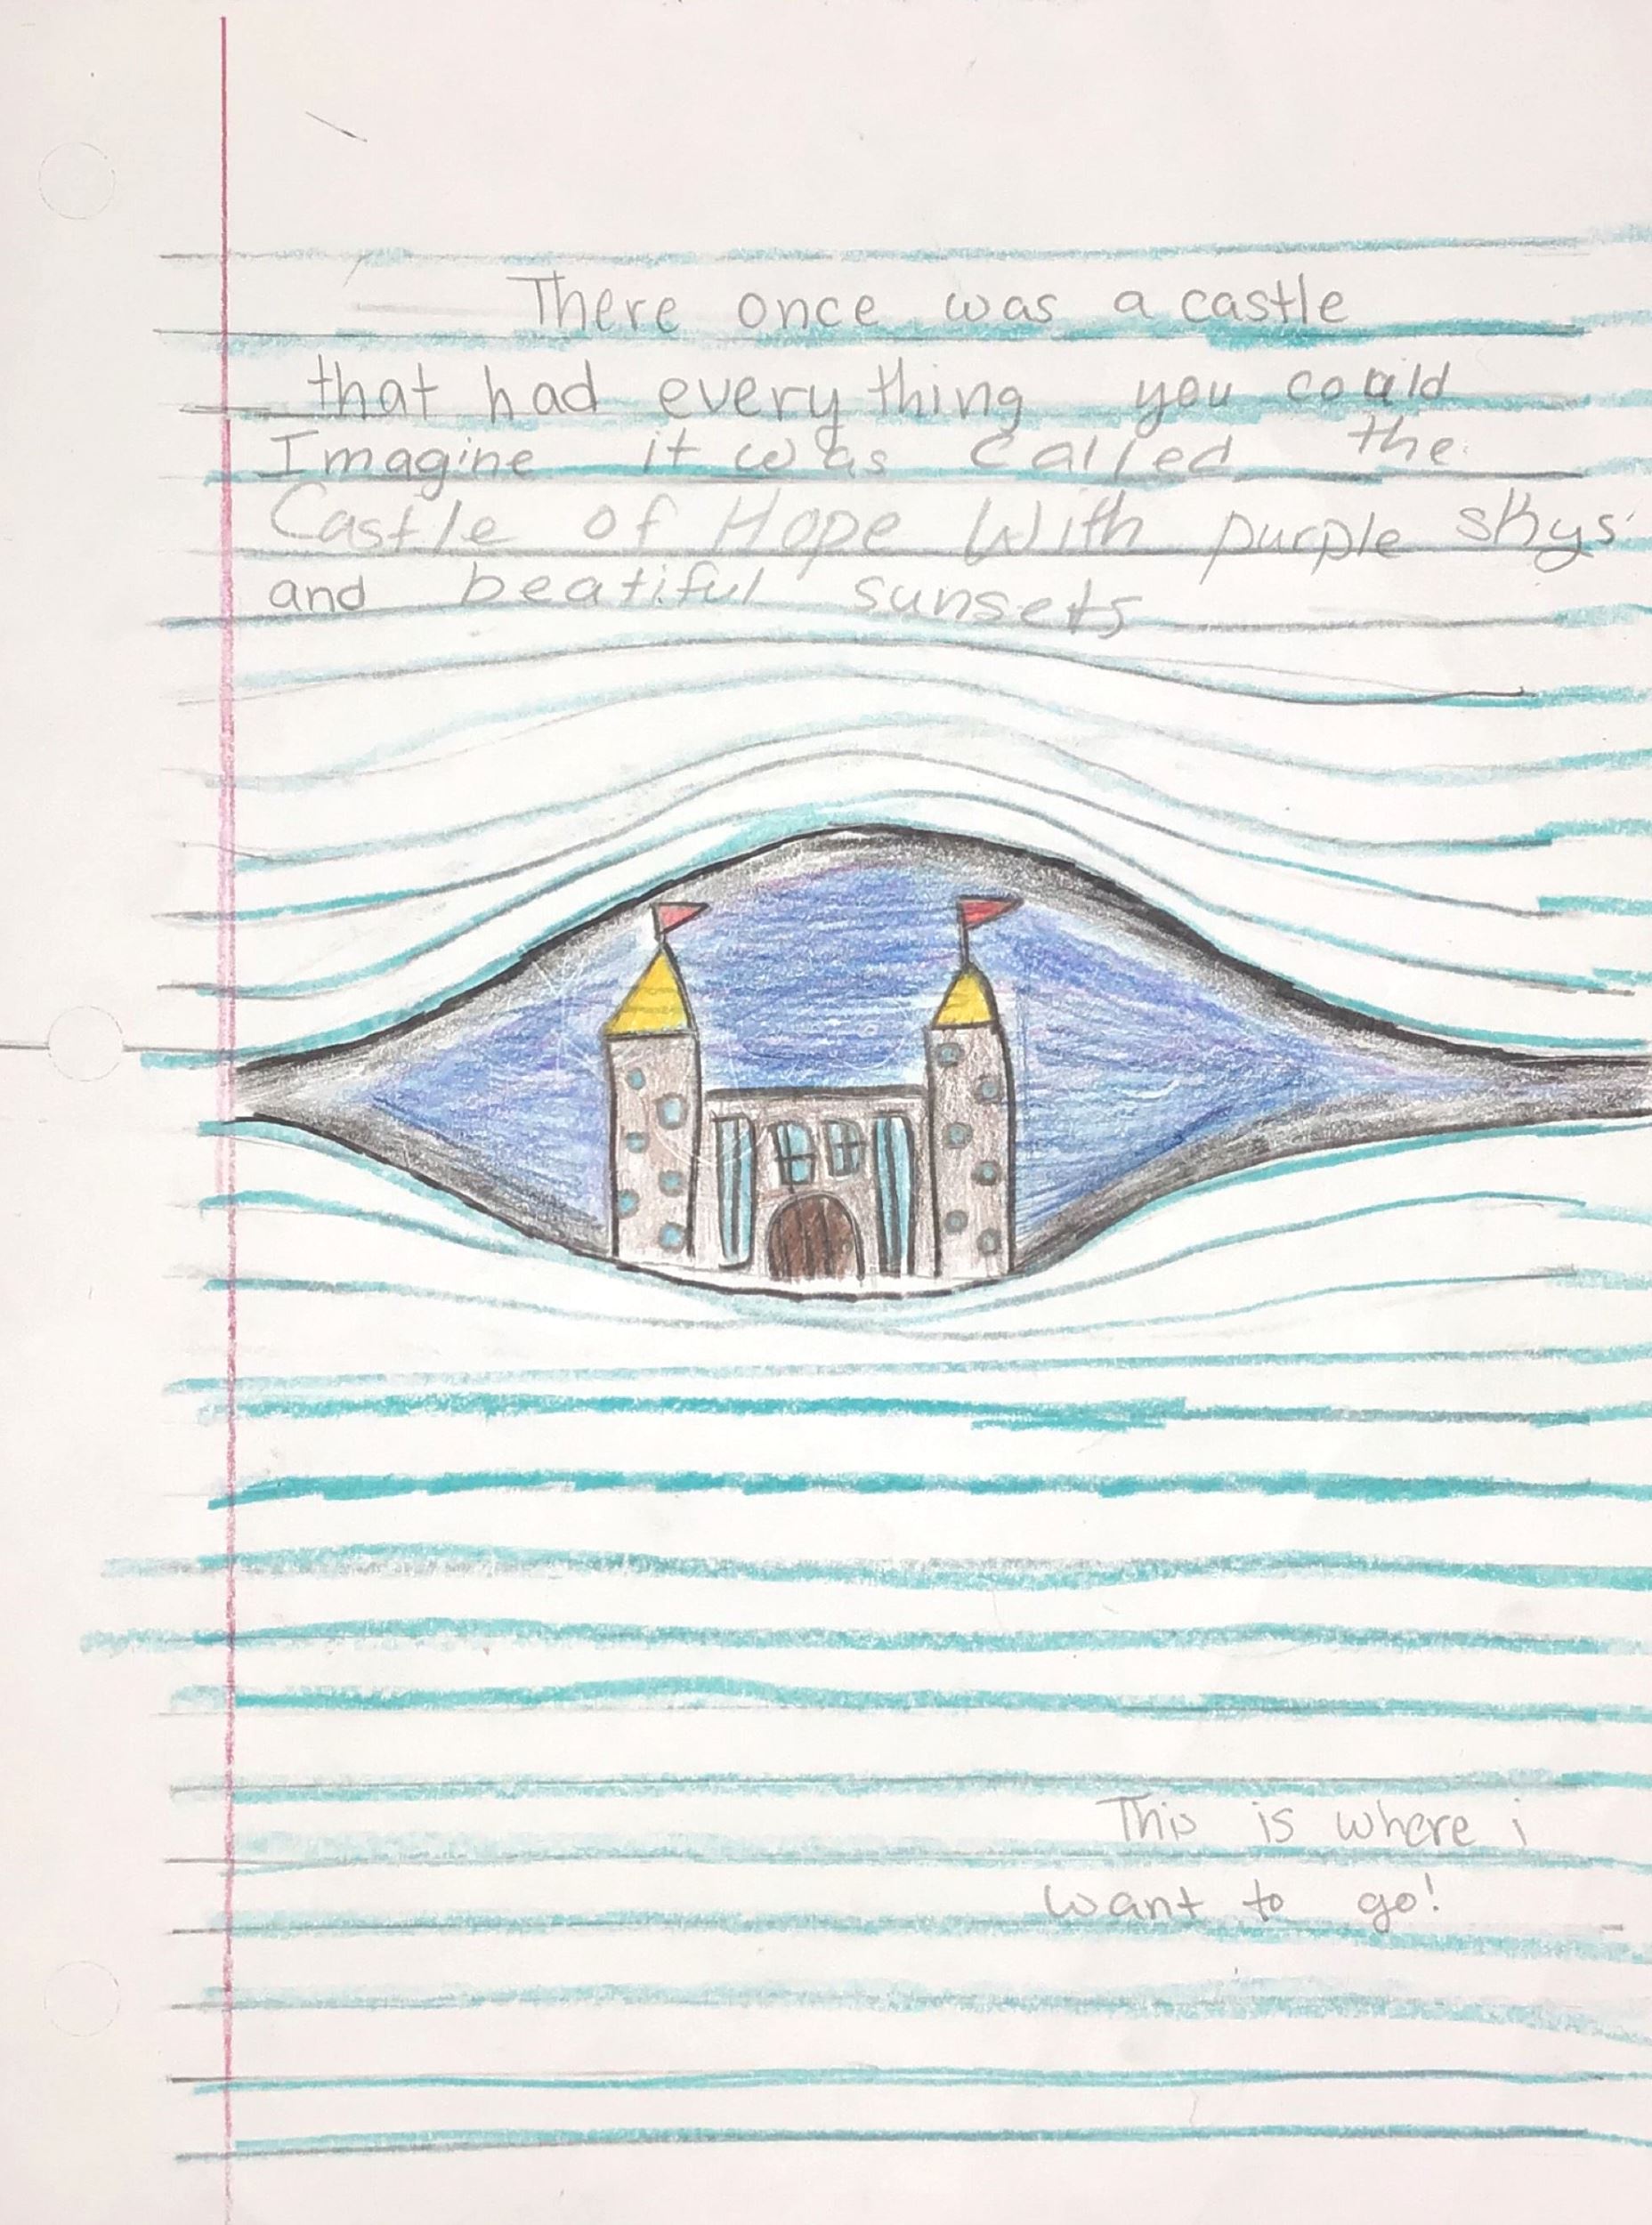 There once was a castle
that had everything you could
Imagine it was called the
Castle of Hope With purple skys
and beatiful sunsets
This is where i
want to go!